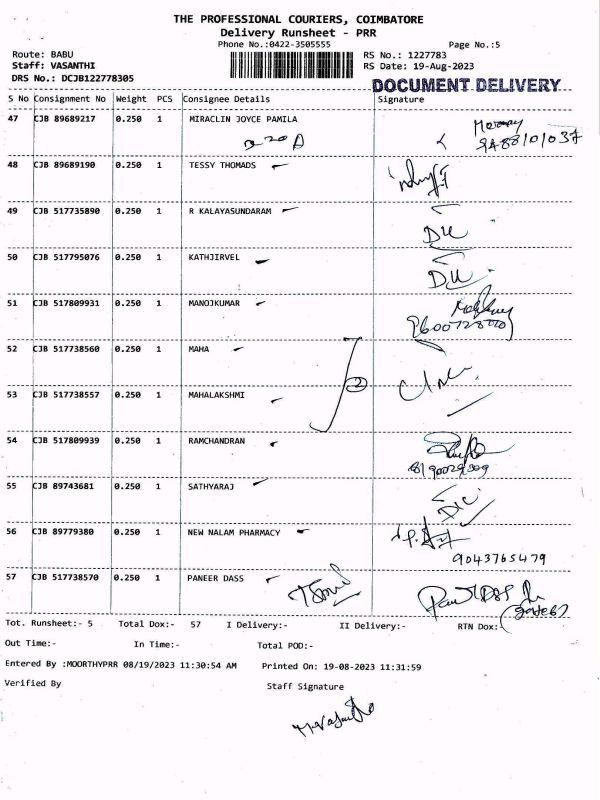 THE PROFESSIONAL COURIERS, COIMBATORE
Delivery Runsheet - PRR
Phone No.:0422-3505555 Page No.:5
Route: BABU RS No.: 1227783
Staff: VASANTHI RS Date: 19-Aug-2023
DRS No.: DCJB122778305
DOCUMENT DELIVERY
S No Consignment No Weight PCS Consignee Details Signature
47 CJB 89689217 0.250 1 MIRACLIN JOYCE PAMILA
9488101037
48 CJB 89689190 0.250 1 TESSY THOMADS
49 CJB 517735890 0.250 1 R KALAYASUNDARAM
50 CJB 517795076 0.250 1 KATHJIRVEL
51 CJB 517809931 0.250 1 MANOJKUMAR
52 CJB 517738560 0.250 1 MAHA
2
53 CJB 517738557 0.250 1 MAHALAKSHMI
54 CJB 517809939 0.250 1 RAMCHANDRAN
55 CJB 89743681 0.250 1 SATHYARAJ
56 CJB 89779380 0.250 1 NEW NALAM PHARMACY
9043765479
57 CJB 517738570 0.250 1 PANEER DASS
Tot. Runsheet:- 5 Total Dox:- 57 I Delivery:- II Delivery:- RTN Dox:-
Out Time:- In Time:- Total POD:-
Entered By :MOORTHYPRR 08/19/2023 11:30:54 AM Printed On: 19-08-2023 11:31:59
Verified By Staff Signature